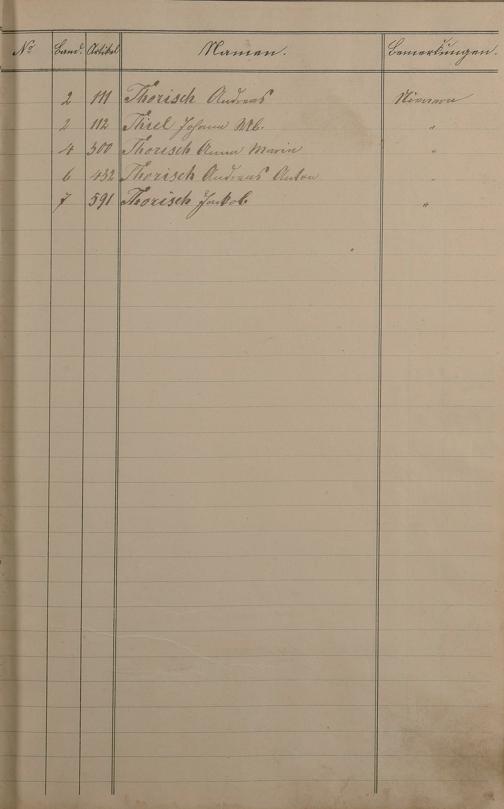 No Band. Artikel Namen. Bemerkungen.
2 111 Thorisch Andreas
2 112 Thiel Johann "
4 300 Thorisch Anna Maria "
6 432 Thorisch Andreas Anton "
7 591 Thorisch Jakob "